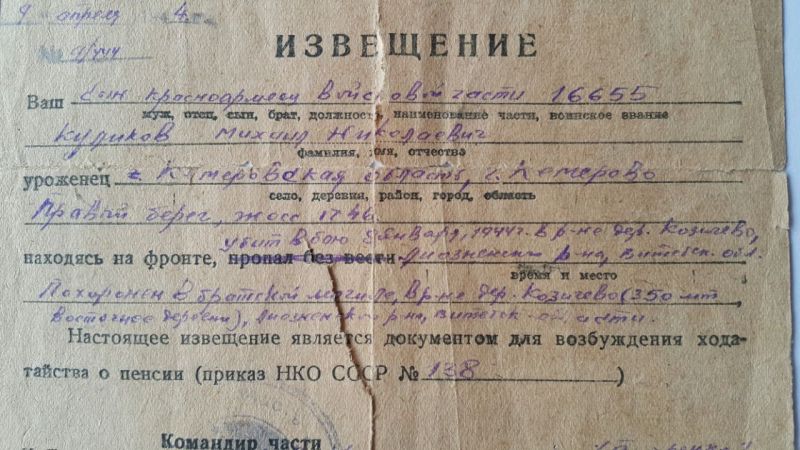 9 апрел 4
ИЗВЕЩЕНИЕ
9/444
Ваш сын красноармеец Войсковой части 16655
муж, отец, сын, брат, должность, наименование части, воинское звание
Куликов Михаил Николаевич
фамилия, имя, отчество
уроженец Кемеровская область, г. Кемерово
село, деревня, район, город, область
Правый берег,
убит в бою 8 января, 1944 г. в р-не дер. Козичево,
находясь на фронте, пропал без вести Лиозненский р-на, Витебск. обл.
время и место
Похоронен в братской могиле, в р-не дер. Козичево (350 мт
Восточнее деревни), Лиозненский р-на, Витебск. области.
Настоящее извещение является документом для возбуждения хода-
тайства о пенсии (приказ НКО СССР № 138 )
Командир части